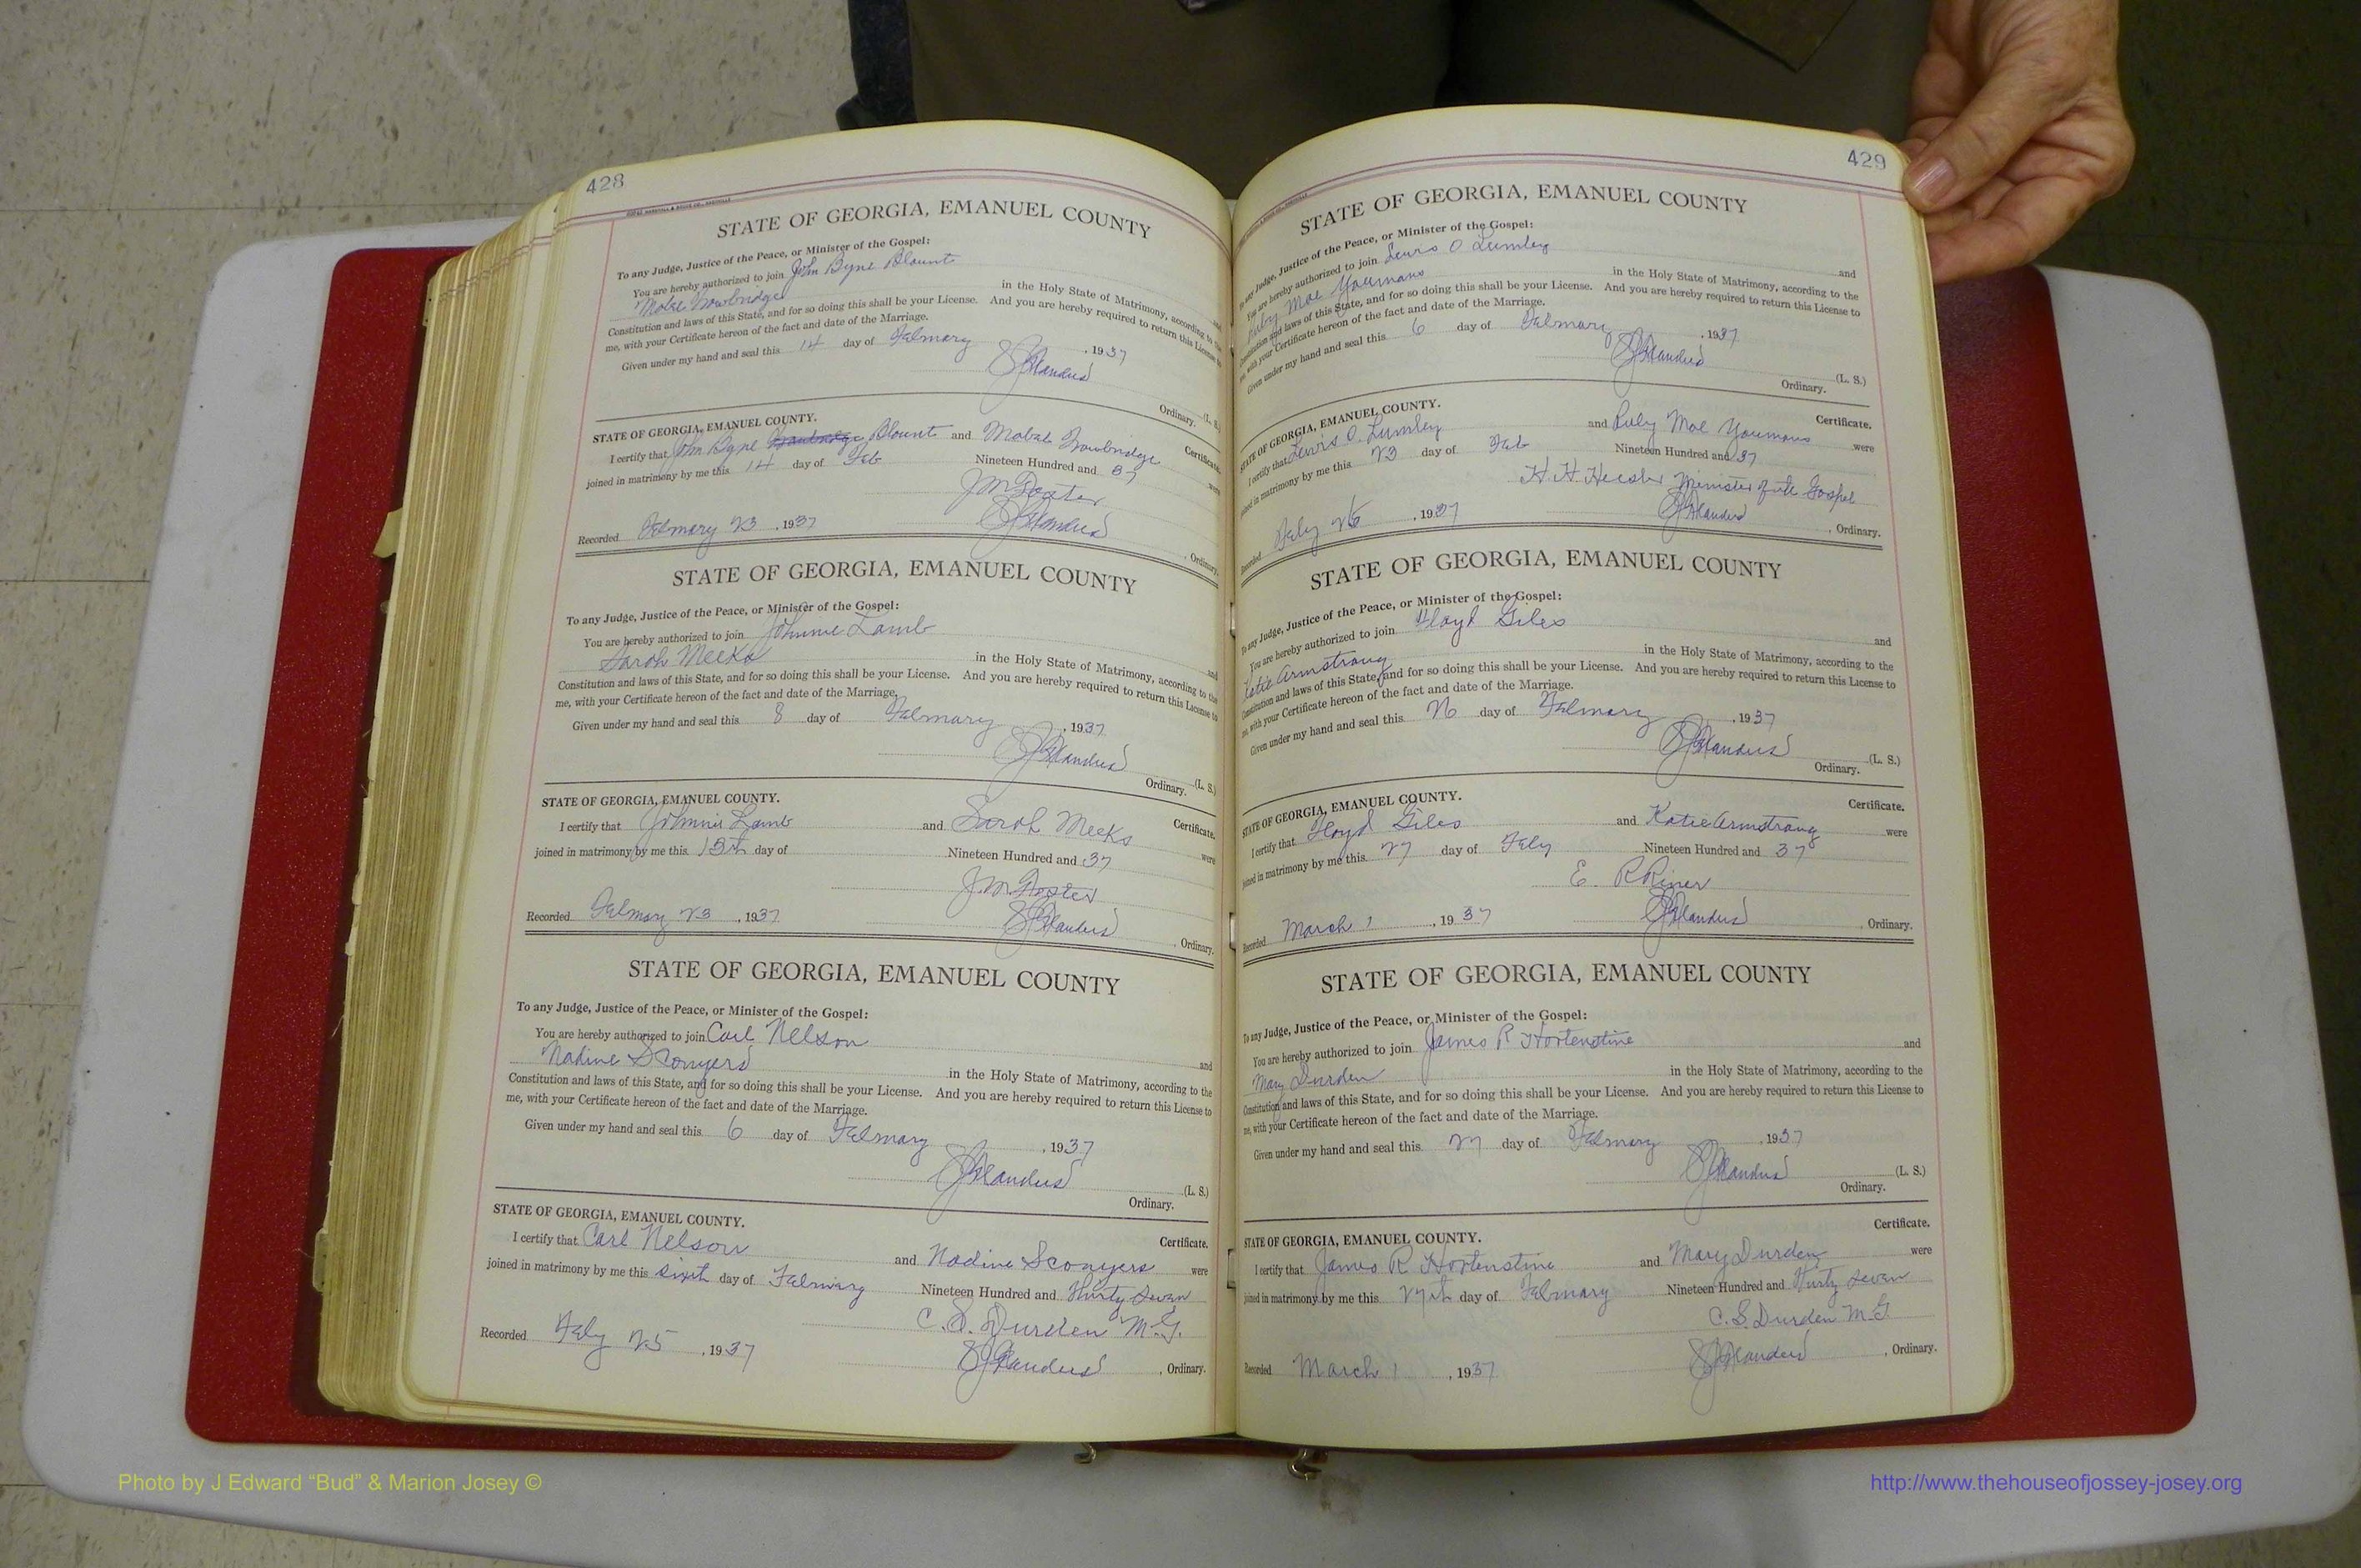 428
STATE OF GEORGIA, EMANUEL COUNTY
To any Judge, Justice of the Peace, or Minister of the Gospel:
You are hereby authorized to join John Byne Blount
Trowbridge in the Holy State of Matrimony, according to the
Constitution and laws of this State, and for so doing this shall be your License. And you are hereby required to return this License to
me, with your Certificate hereon of the fact and date of the Marriage.
Given under my hand and seal this 14 day of February, 1937
(L. S.)
Ordinary.
STATE OF GEORGIA, EMANUEL COUNTY. Certificate.
I certify that John Byne Blount and Mabel Trowbridge were
joined in matrimony by me this 14 day of Feb Nineteen Hundred and 37
Recorded February 23, 1937 Ordinary.
STATE OF GEORGIA, EMANUEL COUNTY
To any Judge, Justice of the Peace, or Minister of the Gospel:
You are hereby authorized to join Johnnie Lamb and
Sarah Meeks in the Holy State of Matrimony, according to the
Constitution and laws of this State, and for so doing this shall be your License. And you are hereby required to return this License to
me, with your Certificate hereon of the fact and date of the Marriage.
Given under my hand and seal this 8 day of February, 1937
(L. S.)
Ordinary.
STATE OF GEORGIA, EMANUEL COUNTY. Certificate.
I certify that Johnnie Lamb and Sarah Meeks were
joined in matrimony by me this 13th day of Nineteen Hundred and 37
Recorded February 23, 1937 Ordinary.
STATE OF GEORGIA, EMANUEL COUNTY
To any Judge, Justice of the Peace, or Minister of the Gospel:
You are hereby authorized to join Carl Nelson and
Nadine Sconyers in the Holy State of Matrimony, according to the
Constitution and laws of this State, and for so doing this shall be your License. And you are hereby required to return this License to
me, with your Certificate hereon of the fact and date of the Marriage.
Given under my hand and seal this 6 day of February, 1937
(L. S.)
Ordinary.
STATE OF GEORGIA, EMANUEL COUNTY. Certificate.
I certify that Carl Nelson and Nadine Sconyers were
joined in matrimony by me this sixth day of February Nineteen Hundred and Thirty Seven
C. S. Durden M.G.
Recorded Feby 25, 1937 Ordinary.
429
STATE OF GEORGIA, EMANUEL COUNTY
To any Judge, Justice of the Peace, or Minister of the Gospel:
You are hereby authorized to join Lewis O Lumley and
Ruby Mae Youmans in the Holy State of Matrimony, according to the
Constitution and laws of this State, and for so doing this shall be your License. And you are hereby required to return this License to
me, with your Certificate hereon of the fact and date of the Marriage.
Given under my hand and seal this 6 day of February, 1937
(L. S.)
Ordinary.
STATE OF GEORGIA, EMANUEL COUNTY. Certificate.
I certify that Lewis O. Lumley and Ruby Mae Youmans were
joined in matrimony by me this 23 day of Feb Nineteen Hundred and 37
H. H. Minister of the Gospel
Recorded Feby 26, 1937 Ordinary.
STATE OF GEORGIA, EMANUEL COUNTY
To any Judge, Justice of the Peace, or Minister of the Gospel:
You are hereby authorized to join Floyd Giles and
Katie Armstrong in the Holy State of Matrimony, according to the
Constitution and laws of this State, and for so doing this shall be your License. And you are hereby required to return this License to
me, with your Certificate hereon of the fact and date of the Marriage.
Given under my hand and seal this 26 day of February, 1937
(L. S.)
Ordinary.
STATE OF GEORGIA, EMANUEL COUNTY. Certificate.
I certify that Floyd Giles and Katie Armstrong were
joined in matrimony by me this 27 day of Feby Nineteen Hundred and 37
E. R Riner
Recorded March 1, 1937 Ordinary.
STATE OF GEORGIA, EMANUEL COUNTY
To any Judge, Justice of the Peace, or Minister of the Gospel:
You are hereby authorized to join James R Hortenstine and
Mary Durden in the Holy State of Matrimony, according to the
Constitution and laws of this State, and for so doing this shall be your License. And you are hereby required to return this License to
me, with your Certificate hereon of the fact and date of the Marriage.
Given under my hand and seal this 27 day of February, 1937
(L. S.)
Ordinary.
STATE OF GEORGIA, EMANUEL COUNTY. Certificate.
I certify that James R Hortenstine and Mary Durden were
joined in matrimony by me this 27th day of February Nineteen Hundred and Thirty Seven
C. S. Durden M.G
Recorded March 1, 1937 Ordinary.
Photo by J Edward “Bud” & Marion Josey ©
http://www.thehouseofjossey-josey.org